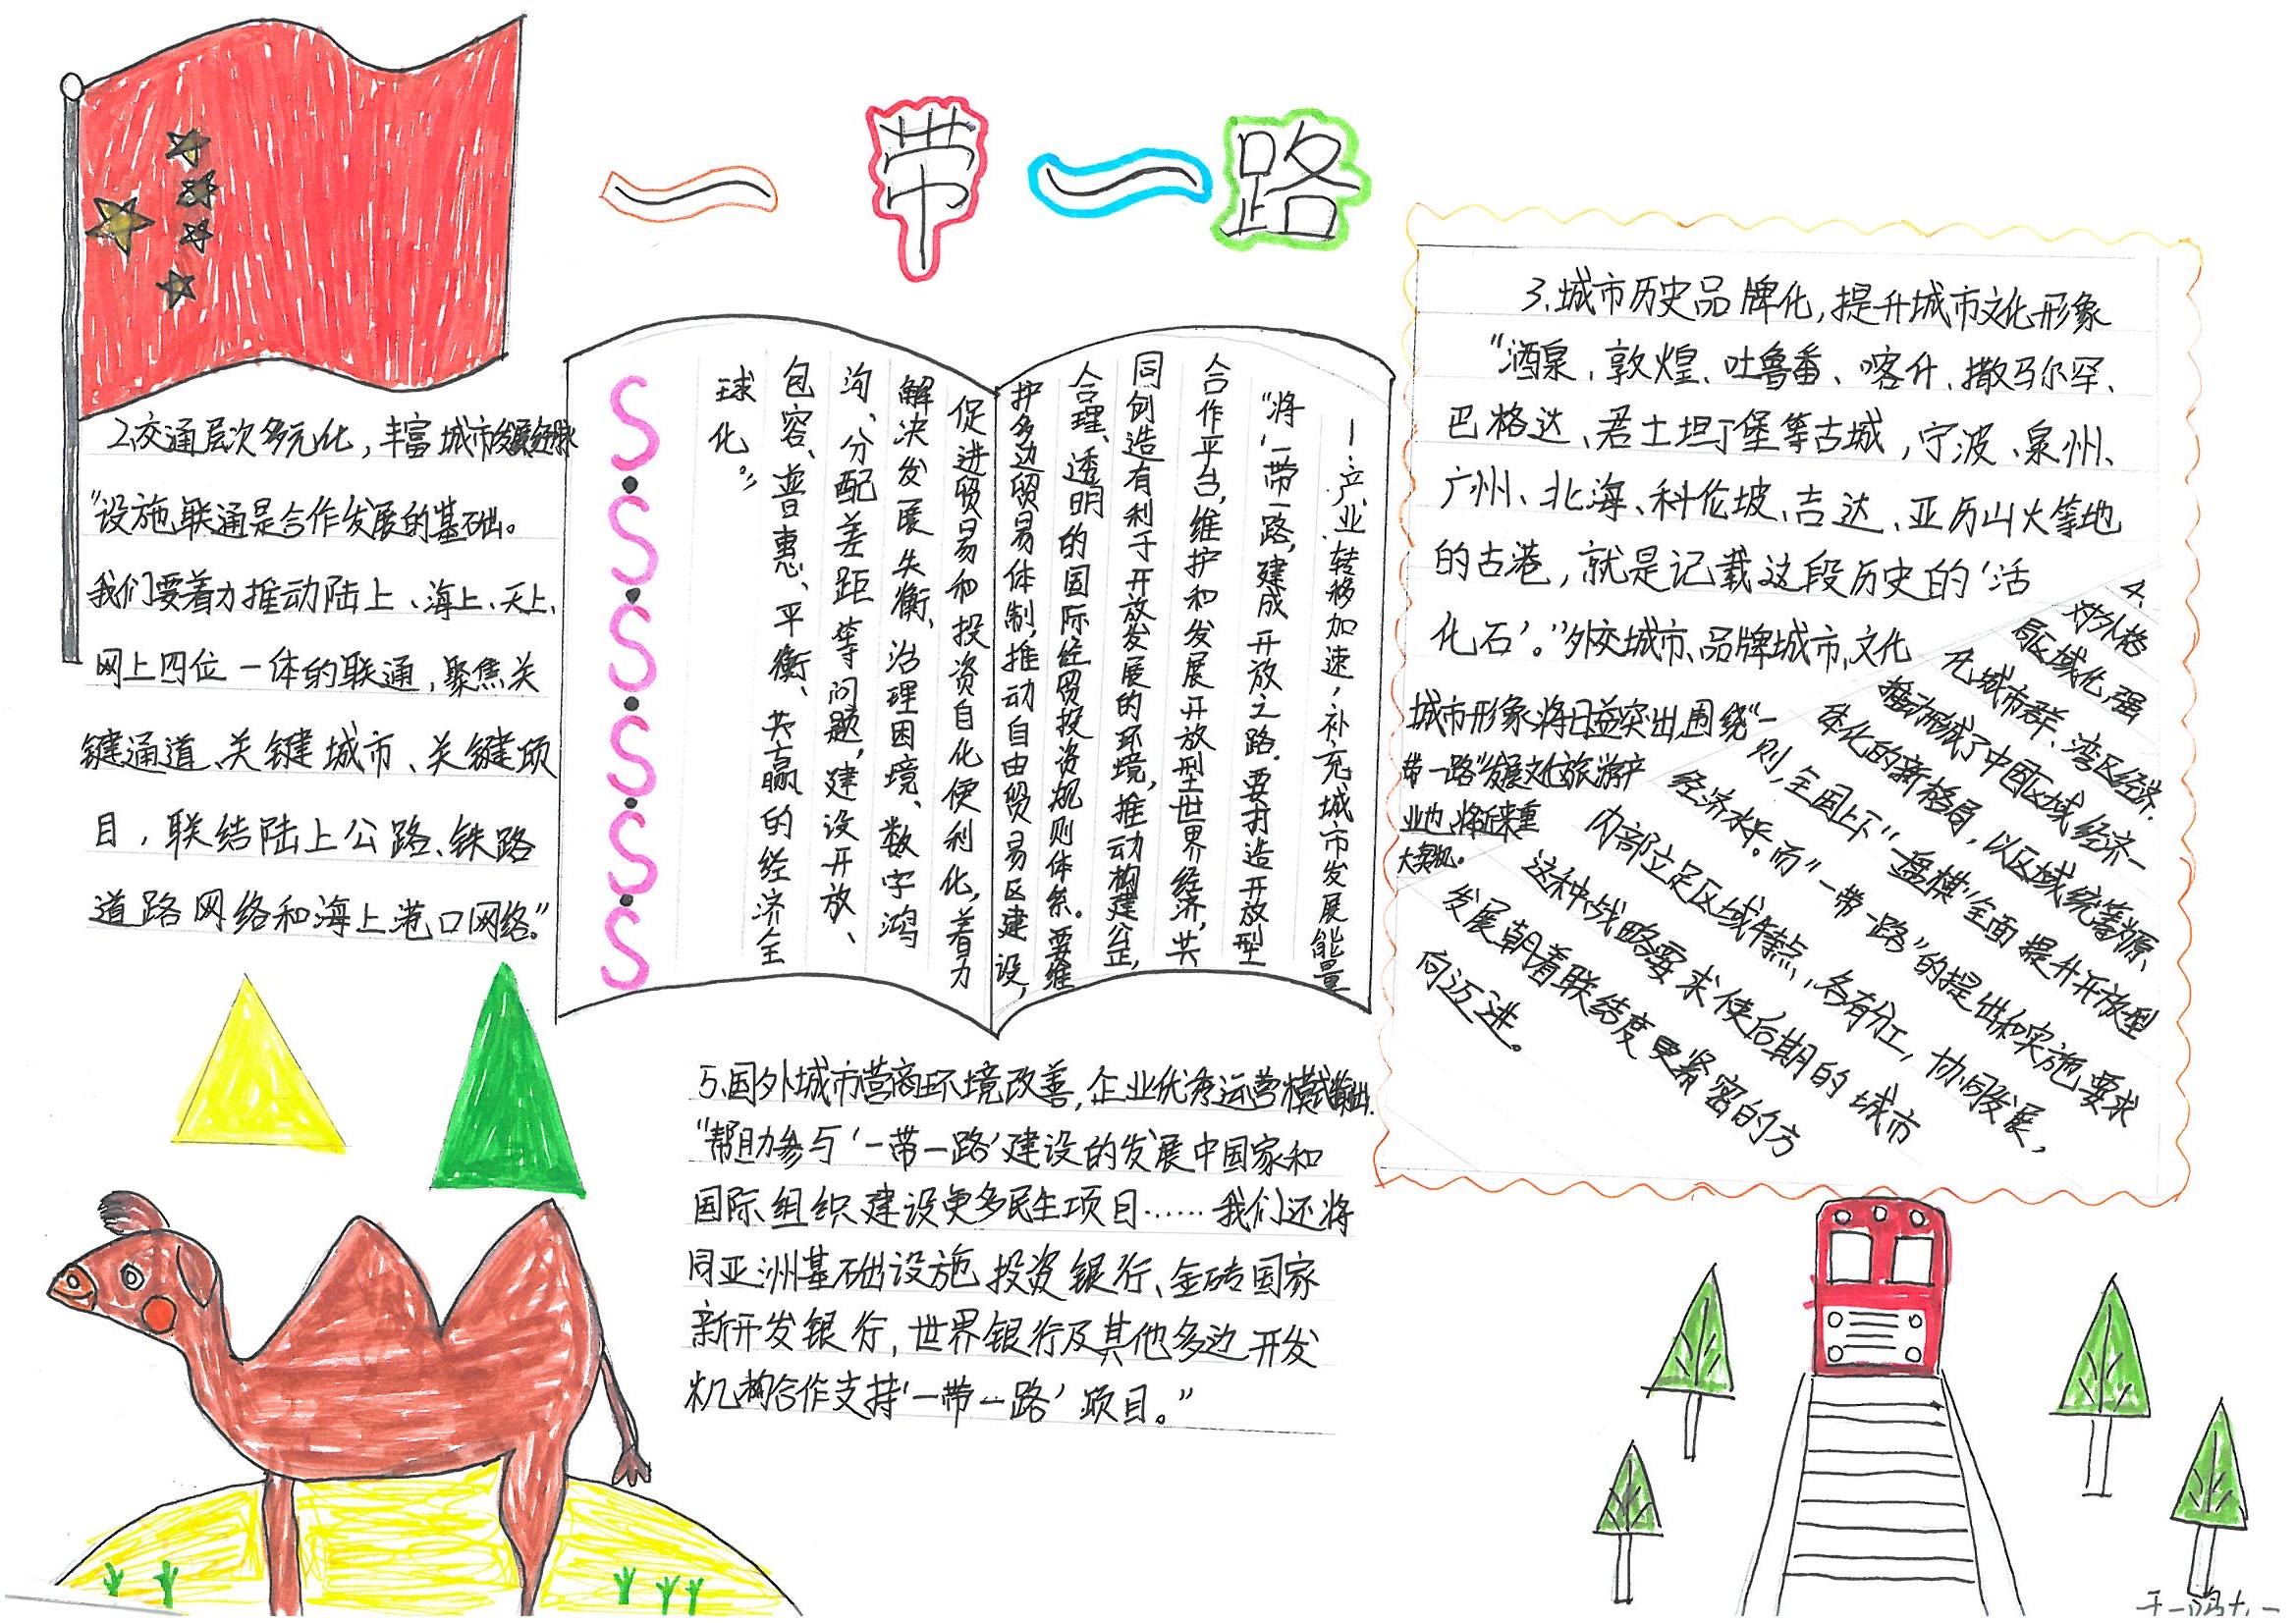 一带一路
2、交通层次多元化,丰富城市发展经脉
"设施联通是合作发展的基础。
我们要着力推动陆上、海上、天上、
网上四位一体的联通,聚焦关
键通道、关键城市、关键项
目,联结陆上公路、铁路
道路网络和海上港口网络."
S·S·S·S·S·S
一、产业转移加速,补充城市发展能量
"将'一带一路'建成开放之路.要打造开放型
合作平台,维护和发展开放型世界经济,共
同创造有利于开放发展的环境,推动构建公正,
合理、透明的国际经贸投资规则体系。要维
护多边贸易体制,推动自由贸易区建设,
促进贸易和投资自化便利化,着力
解决发展失衡、治理困境、数字鸿
沟、分配差距等问题,建设开放、
包容、普惠、平衡、共赢的经济全
球化。"
3、城市历史品牌化,提升城市文化形象
"酒泉、敦煌、吐鲁番、喀什、撒马尔罕、
巴格达、君士坦丁堡等古城,宁波、泉州、
广州、北海、科伦坡、吉达、亚历山大等地
的古港,就是记载这段历史的'活
化石'。"外交城市、品牌城市,文化
城市形象将日益突出,围绕"一
带一路"发展文化旅游产
业也将迎来重
大契机。
4、
对外格
局区域化,强
化城市群、湾区经济.
推动形成了中国区域经济一
体化的新格局,以区域统筹为原
则,全国上下"一盘棋"全面提升开放型
经济水平。而"一带一路"的提出和实施要求
内部立足区域特点,各有分工,协同发展,
这种战略要求使后期的城市
发展朝着联结度更紧密的方
向迈进。
5、国外城市营商环境改善,企业优秀运营模式输出.
"帮助参与'一带一路'建设的发展中国家和
国际组织建设更多民生项目……我们还将
同亚洲基础设施投资银行、金砖国家
新开发银行,世界银行及其他多边开发
机构合作支持'一带一路'项目。"